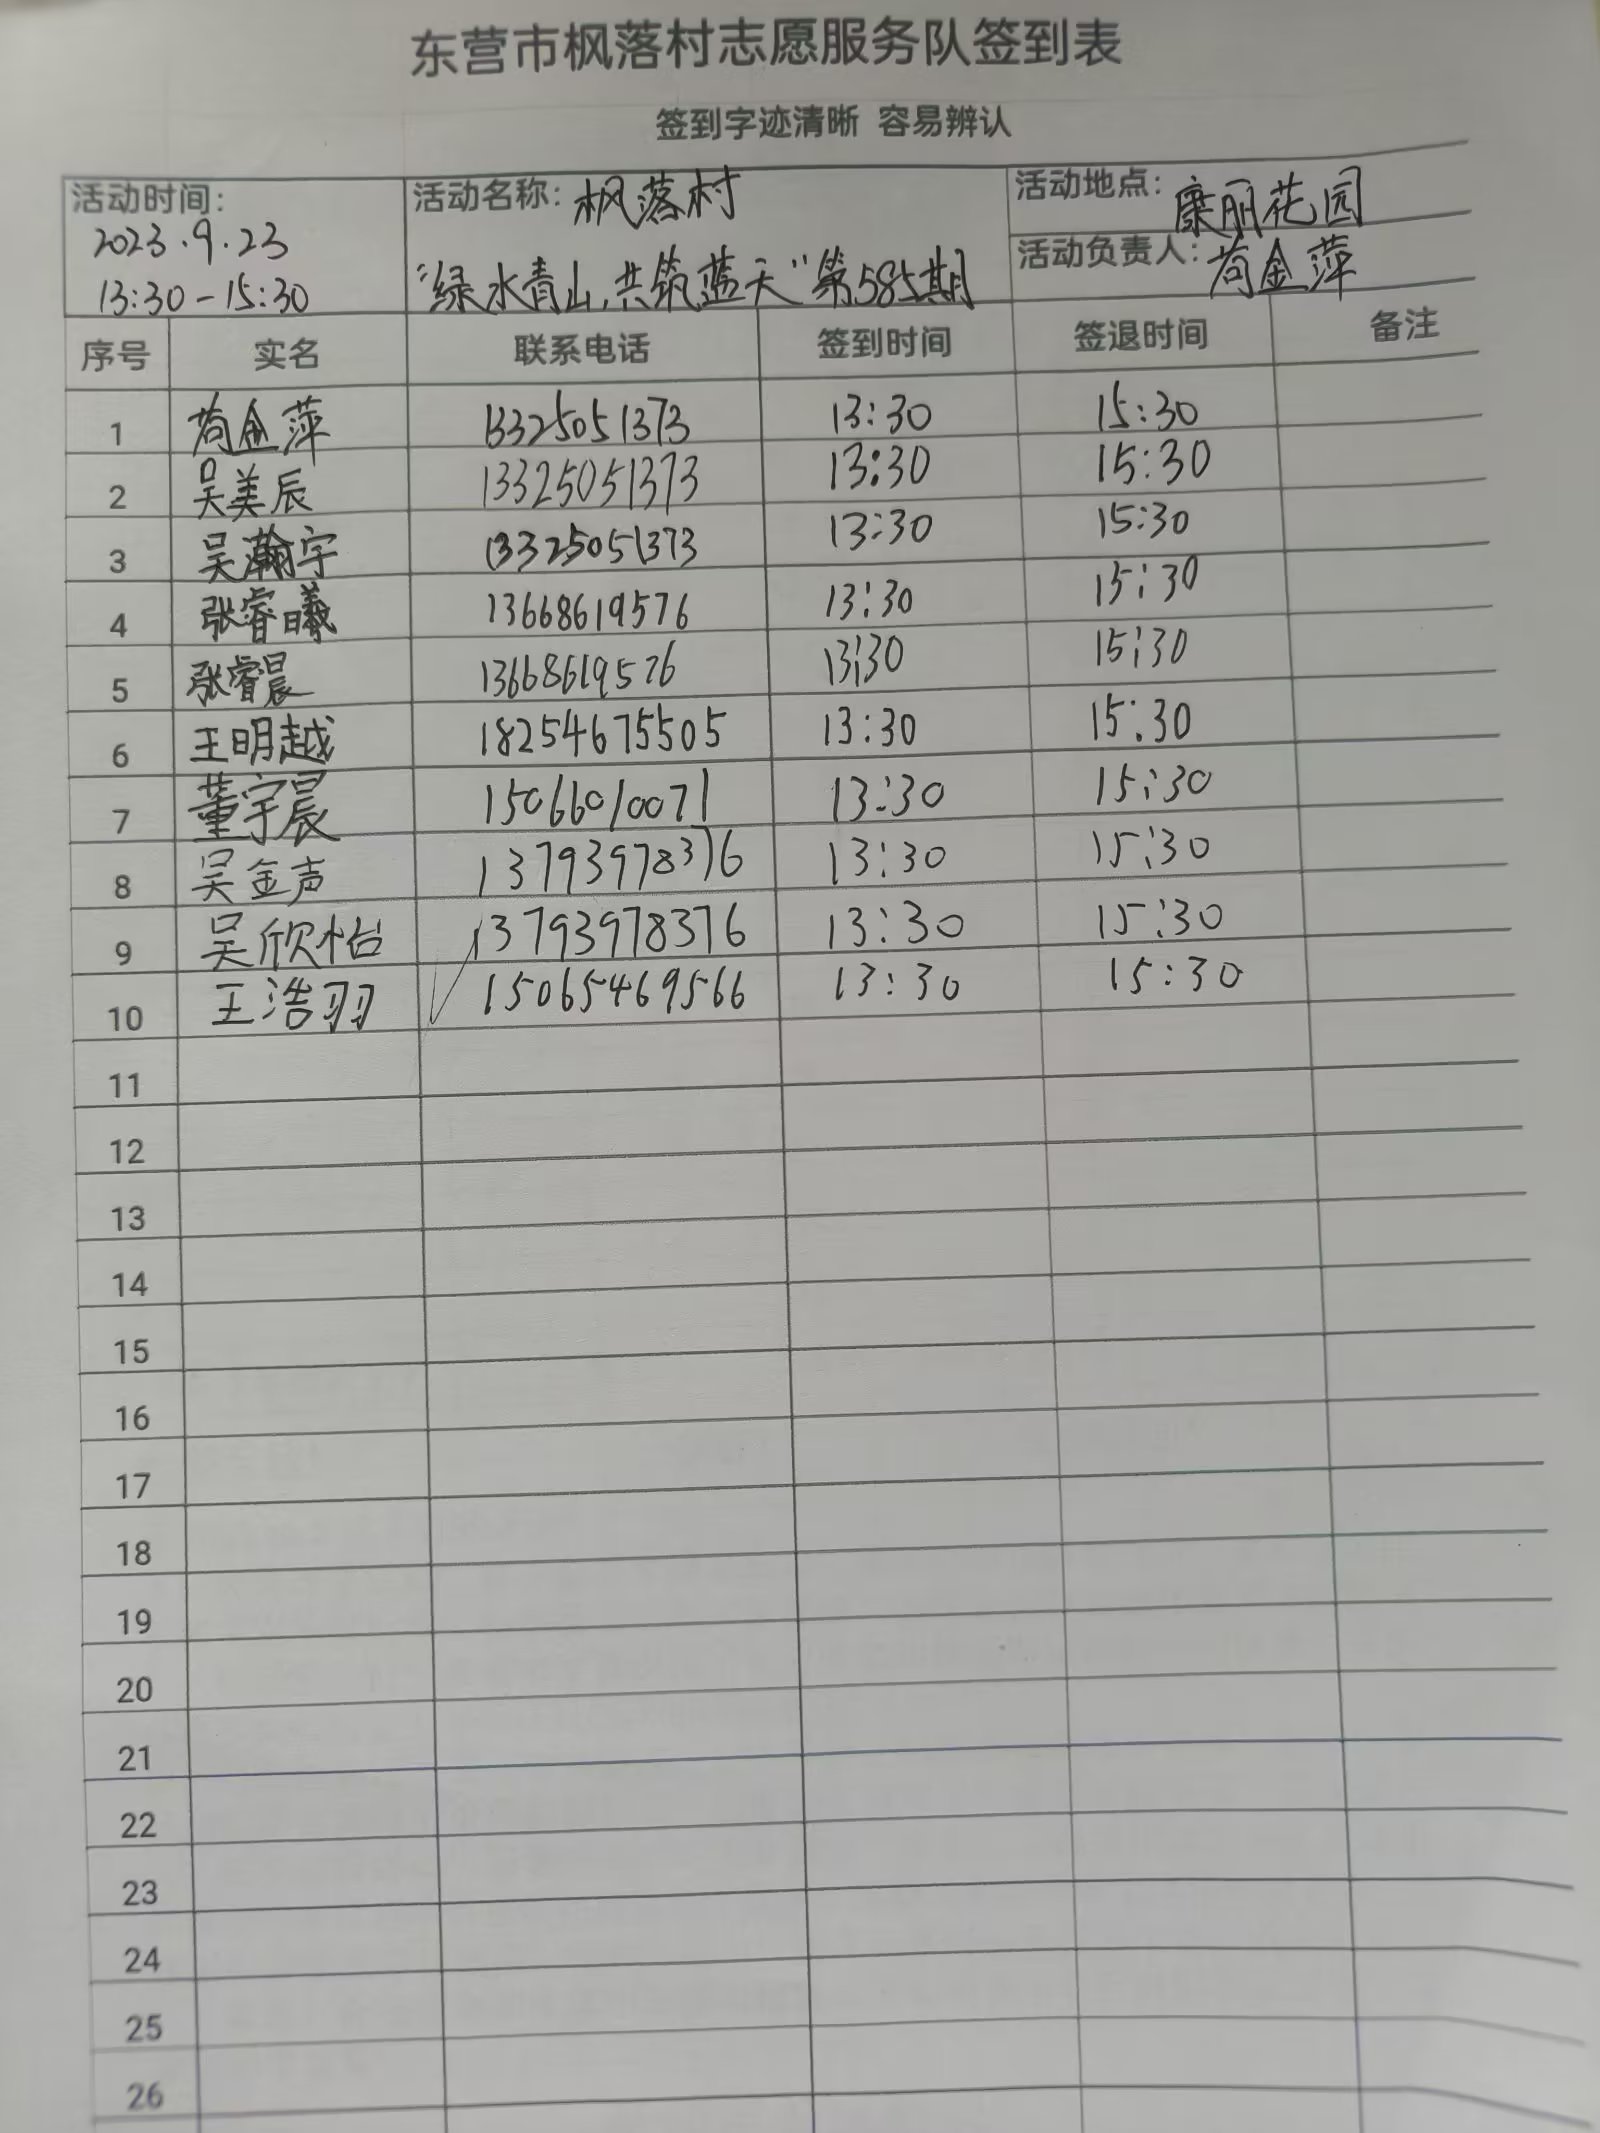 东营市枫落村志愿服务队签到表
签到字迹清晰 容易辨认
活动时间: 2023.9.23 13:30-15:30
活动名称: 枫落村 "绿水青山,共筑蓝天"第585期
活动地点: 康丽花园
活动负责人: 苟金萍
序号 实名 联系电话 签到时间 签退时间 备注
1 苟金萍 13325051373 13:30 15:30
2 吴美辰 13325051373 13:30 15:30
3 吴瀚宇 13325051373 13:30 15:30
4 张睿曦 13668619576 13:30 15:30
5 张睿晨 13668619576 13:30 15:30
6 王明越 18254675505 13:30 15:30
7 董宇晨 15066010071 13:30 15:30
8 吴金声 13793978376 13:30 15:30
9 吴欣怡 13793978376 13:30 15:30
10 王浩羽 15065469566 13:30 15:30
11
12
13
14
15
16
17
18
19
20
21
22
23
24
25
26